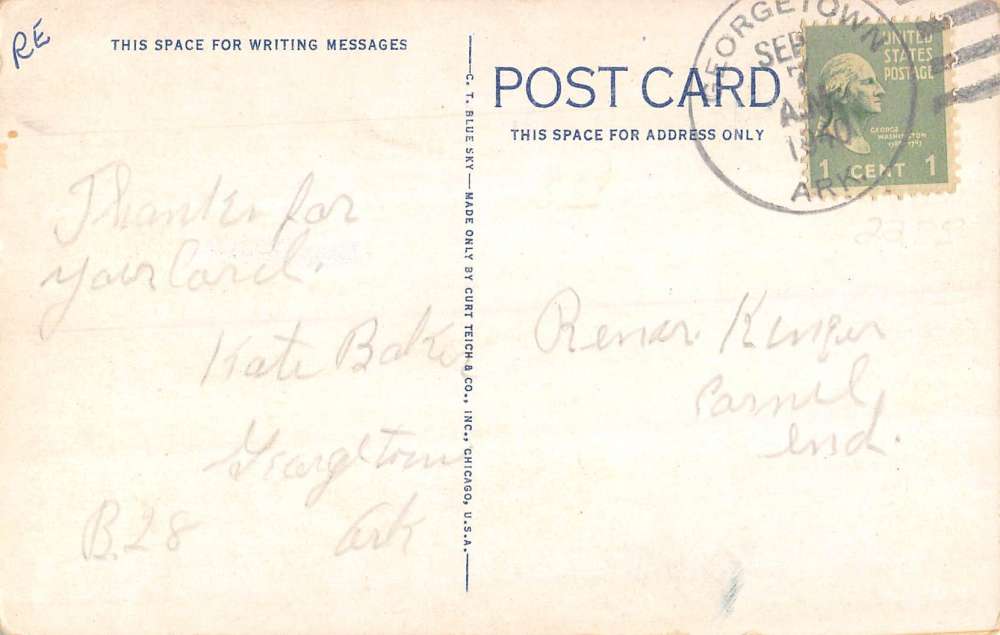 RE
THIS SPACE FOR WRITING MESSAGES
Thanks for
your Card.
Kate Baker
Georgetown
B.28 Ark
C. T. BLUE SKY — MADE ONLY BY CURT TEICH & CO., INC., CHICAGO, U.S.A.
POST CARD
THIS SPACE FOR ADDRESS ONLY
GEORGETOWN
SEP
7
A.M.
1940
ARK
UNITED
STATES
POSTAGE
GEORGE
WASHINGTON
1 CENT 1
Ind.